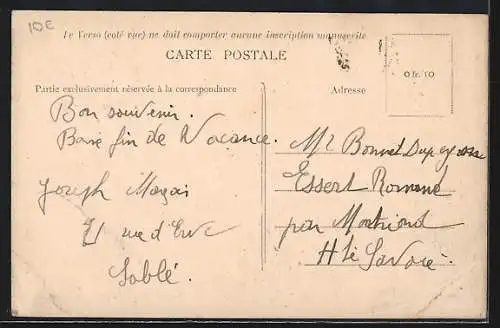 10€
Le Verso (coté vue) ne doit comporter aucune inscription manuscrite
CARTE POSTALE
Partie exclusivement réservée à la correspondance
Adresse
0 fr. 10
Bon souvenir.
Bone fin de Vacance.
Joseph
71 rue d'Erve
Sablé.
Mr Bonnet
Essert Romand
par Montriond
Hte Savoie.